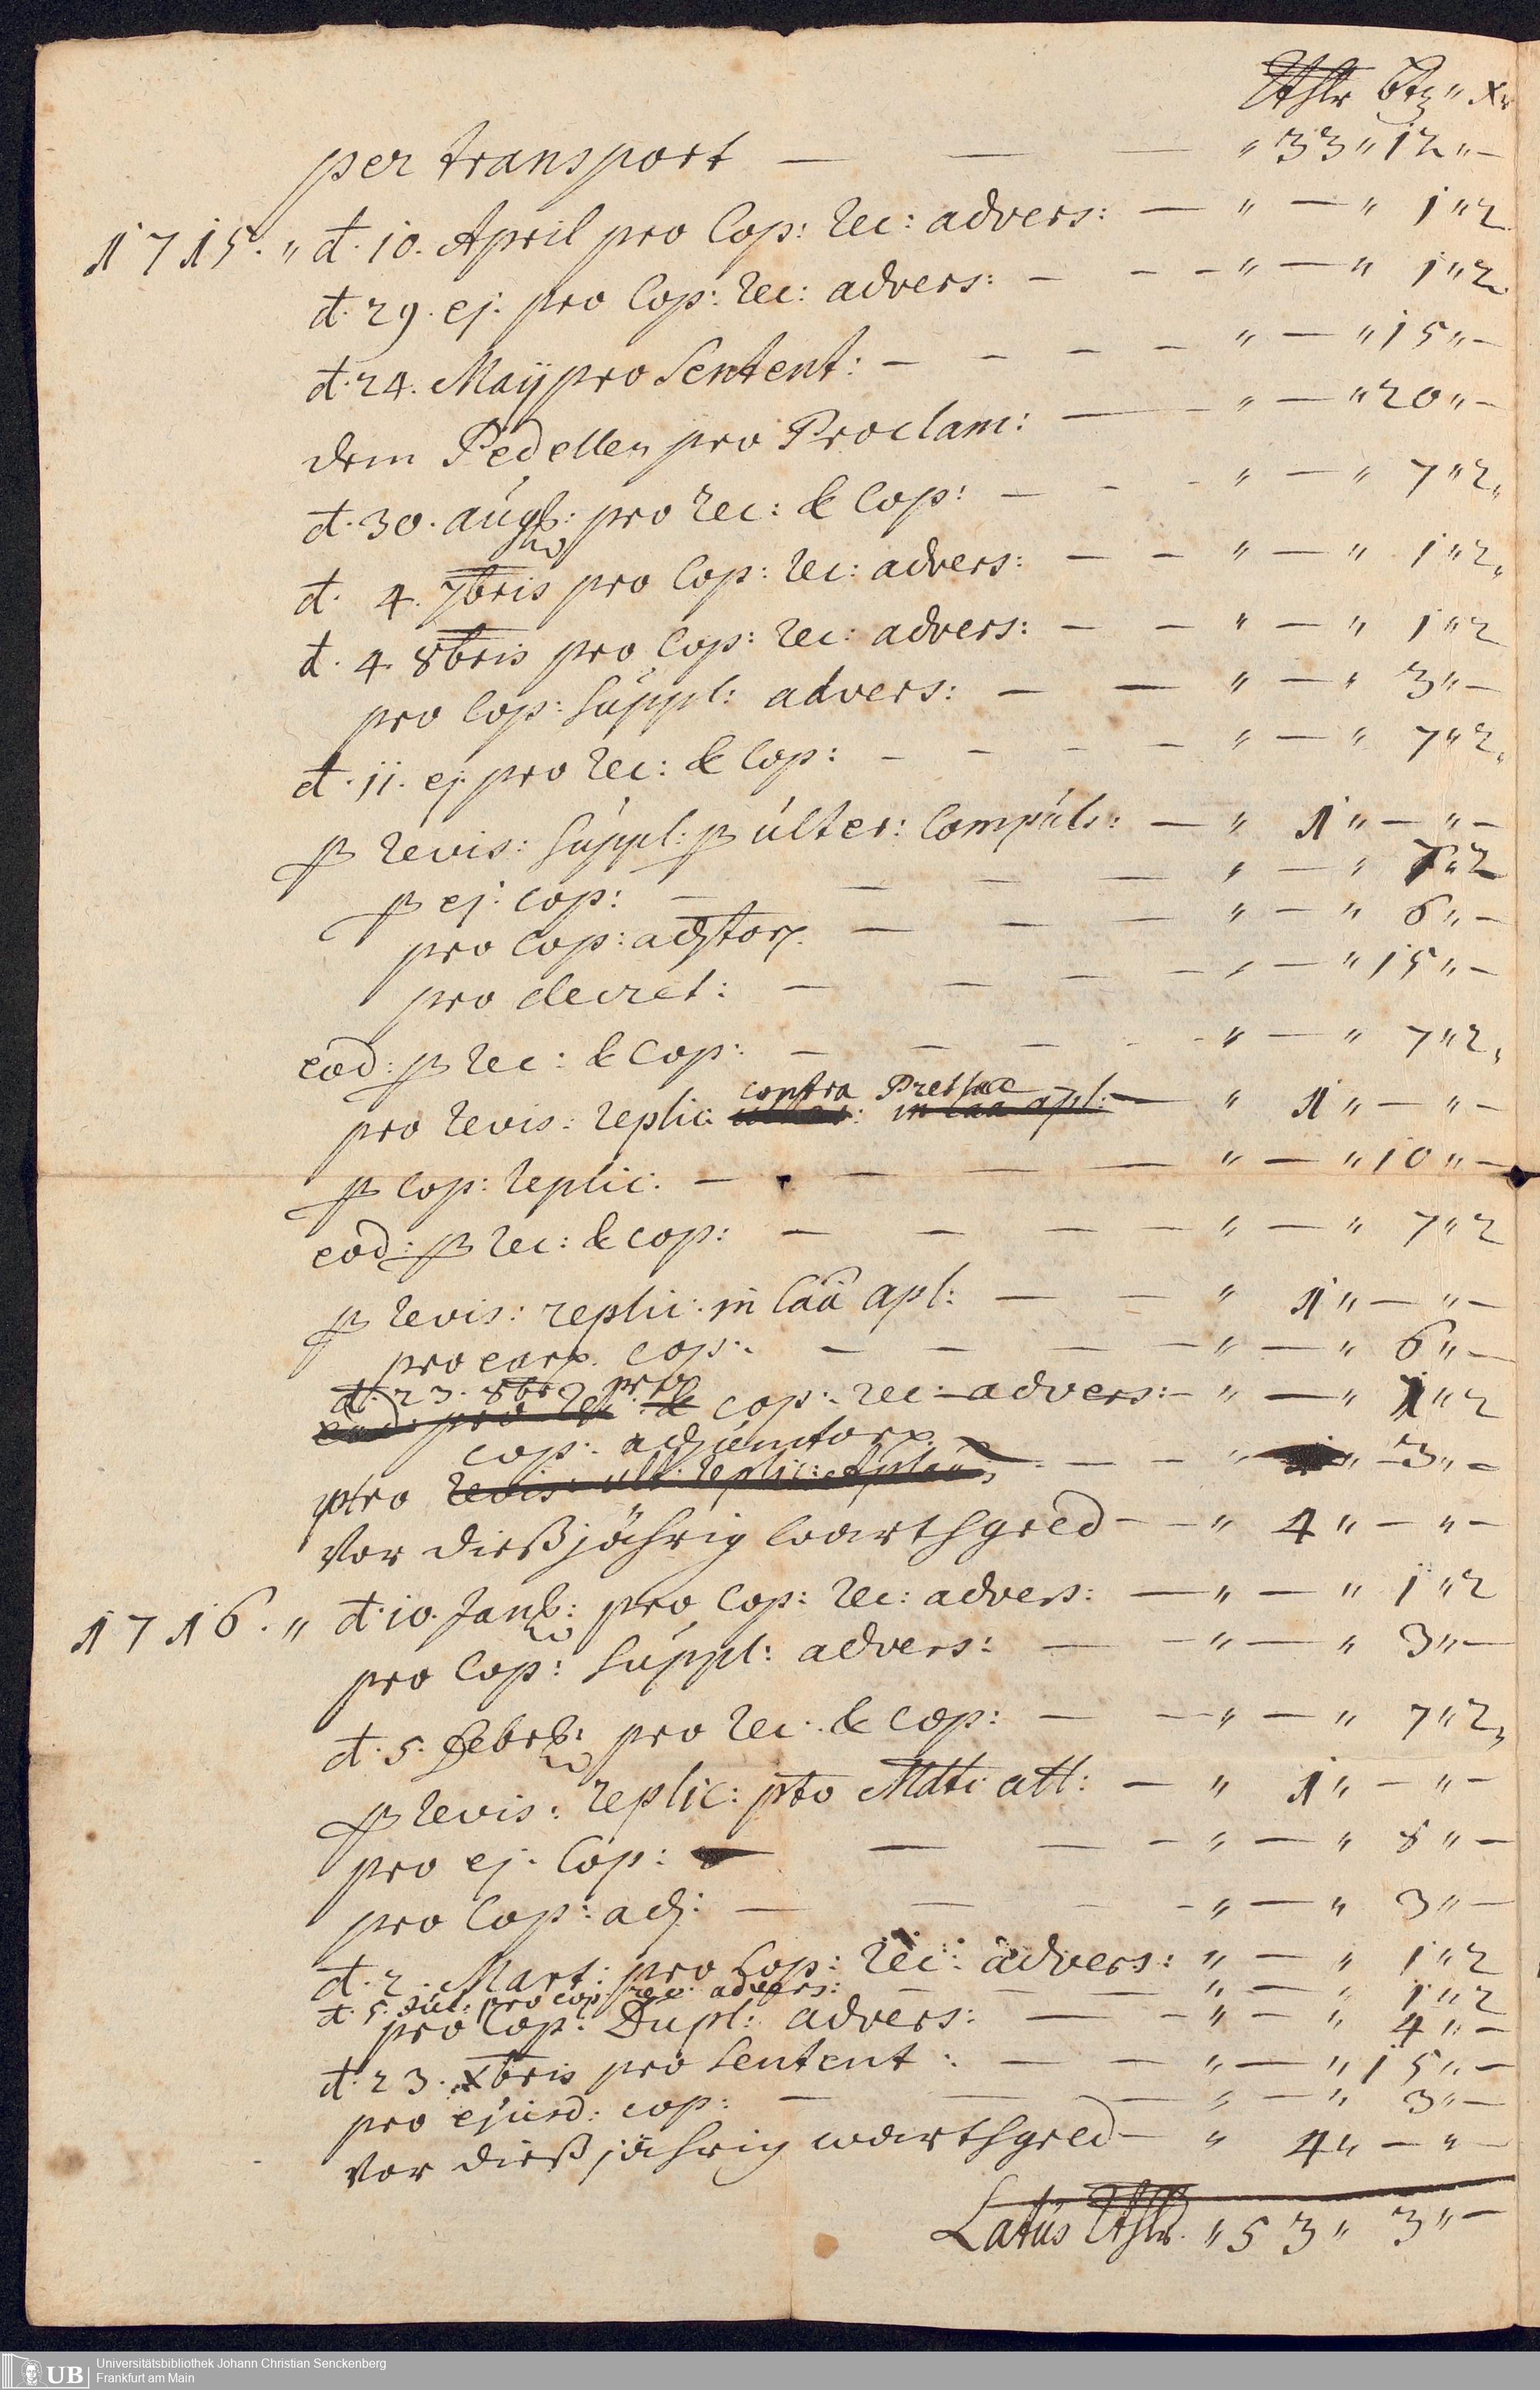 Rthlr Btz " Xr
per transport — — — " 33 " 12 " —
1715. " d. 10. April pro Cop: rec: advers: — " — " 1 " 2
d. 29. ej. pro Cop: rec: advers: — — — " — " 1 " 2
d. 24. Maÿ pro Sentent: — — — — " — " 15 " —
dem Pedellen pro Proclam: — — " — " 20 " —
d. 30. aug: pro rec: & Cop: — — — " — " 7 " 2
d. 4. 7bris pro Cop: rec: advers: — — " — " 1 " 2
d. 4. 8bris pro Cop: rec: advers: — — " — " 1 " 2
pro Cop: Suppl: advers: — — " — " 3 " —
d. 11. ej. pro rec: & Cop: — — — — " — " 7 " 2
p revis: Suppl: p ulter: Compuls: — " 1 " — " —
p ej: cop: — — — — " — " 7 " 2
pro Cop: adjtor. — — — " — " 6 " —
pro decret: — — — — " — " 15 " —
eod: p rec: & Cop: — — — — " — " 7 " 2
contra
pro revis: replic: in caa apl: — " 1 " — " —
p Cop: replic: — — — — " — " 10 " —
eod: p rec: & cop: — — — — " — " 7 " 2
p revis: replic: in Caä apl: — — " 1 " — " —
pro earx. cop: — — — — " — " 6 " —
d. 23. 8br pro
eod: pro rec: & cop: rec: advers: — " — " 1 " 2
cop: adjunctorx.
pro revis: ult: replic: — — " " 3 " —
Vor dießjährig warthgeld — — " 4 " — " —
1716. " d. 10. Jan: pro Cop: rec: advers: — " — " 1 " 2
pro Cop: Suppl: advers: — — " — " 3 " —
d. 5. Febr: pro rec: & cop: — — " — " 7 " 2
p revis: replic: pto Mdti att: — " 1 " — " —
pro ej. Cop: — — — — " — " 8 " —
pro Cop: adj: — — — " — " 3 " —
d. 2. Mart: pro Cop: rec: advers: " — " 1 " 2
d. 5. Jul: pro cop: rec: advers: — — — " — " 1 " 2
pro Cop: Dupl: advers: — — " — " 4 " —
d. 23. Xbris pro Sentent: — — " — " 15 " —
pro ejusd: cop: — — — " — " 3 " —
Vor dießjährig warthgeld — " 4 " — " —
Latus Rthlr. " 53 " 3 " —
UB
Universitätsbibliothek Johann Christian Senckenberg
Frankfurt am Main